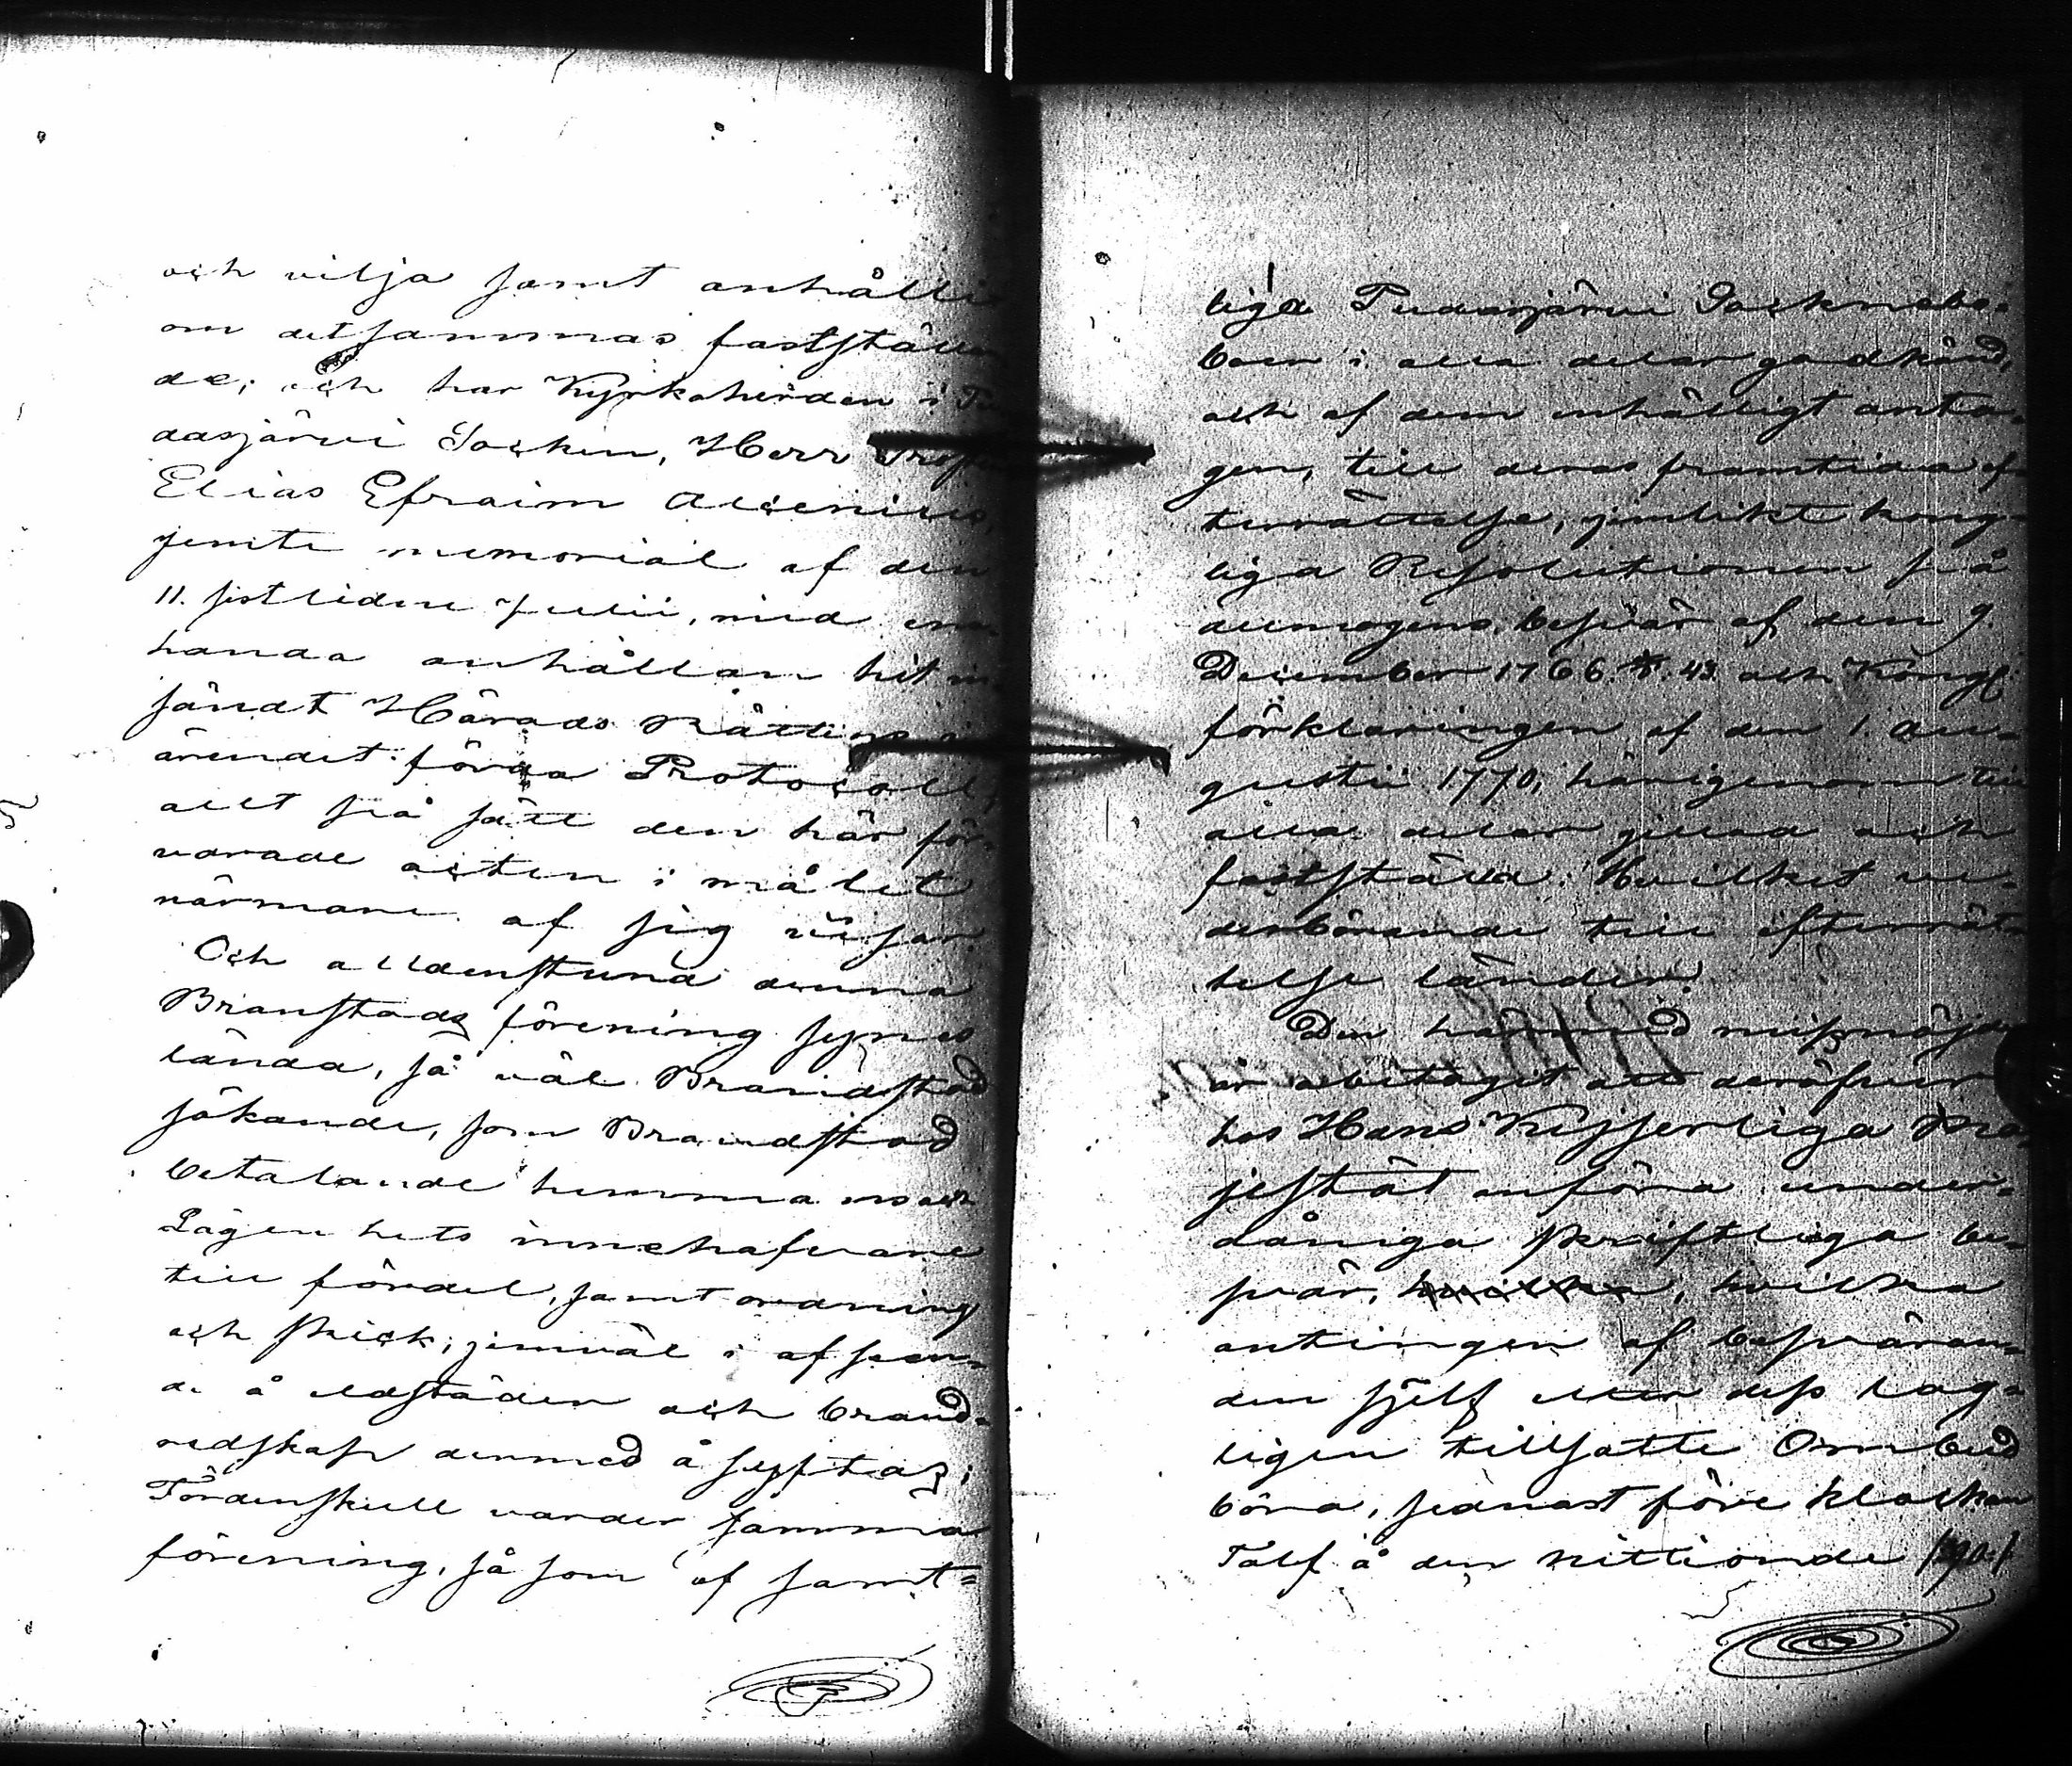 och vilja samt anhålli
om detsammas fastställan
de; och har Kyrkoherden i Pu
dasjärvi Socken, Herr
Elias Efraim Alcenius,
jemte memorial af den
11. sistlidne Julii, med ena
handa anhållan hit in
sändt Härads Rättens i
ärendet förda Protocoll,
allt på sätt den här för-
varade acten i målet
närmare af sig viisar.
Och alldenstund denna
Branstads förening synes
lända, så väl Brandstod
sökande, som Brandstod
betalande hemmans och
Lägenhets innehafvare
till fördel, samt ordning
och skick, jemväl i afseen-
de å eldstäder och brand-
redskap dermed åsyftas;
Tördenskull varder samma
förening, så som af samt-
liga Pudasjärvi Socknebo-
boer i alla delar godkänd,
och af dem enhälligt anta-
gen, till deras framtida ef-
terrättelse, jemlikt kong-
liga Resolutionen på
allmogens besvär af den 9.
December 1766. §. 43. och Kongl:
förklaringen af den 1. Au-
gustii 1770, härigenom till
alla delar gillad och
fastställd. Hvilket ve-
derbörande till efterrät-
telse länder.
Den härmed missnöjde
är obetaget att deröfver
hos Hans Kejserliga Ma-
jestät anföra under-
dåniga skriftliga be-
svär, hvilka, hvilka
antingen af besväran-
den sjelf eller dess lag-
ligen tillsatte Ombud
böra, sednast före klockan
Tolf å den nittionde /90./